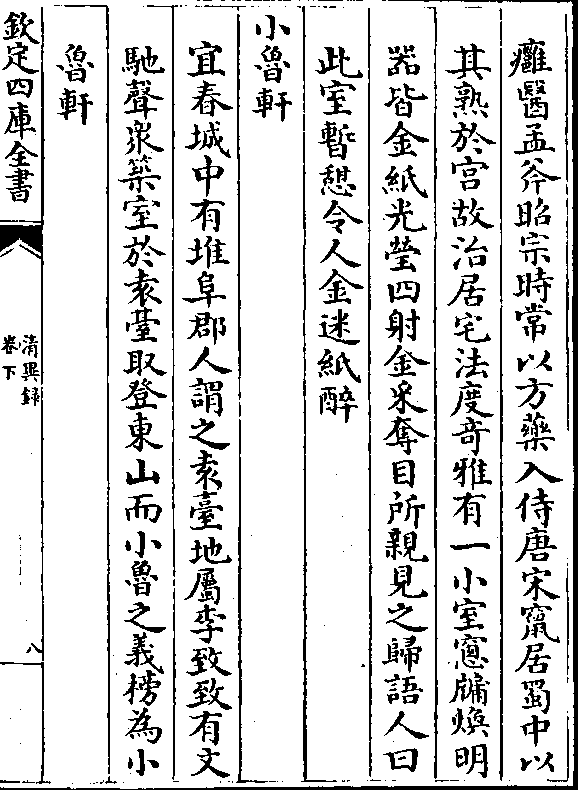 癰醫孟斧昭宗時常以方藥入侍唐宋竄居蜀中以
其熟於宫故治居宅法度竒雅有一小室窻牖煥明
器皆金紙光瑩四射金采奪目所親見之歸語人曰
此室暫憩令人金迷紙醉
小魯軒
宜春城中有堆阜郡人謂之袁臺地屬李致致有文
馳聲衆築室於袁臺取登東山而小魯之義榜為小
魯軒
欽定四庫全書
清異録
卷下
八